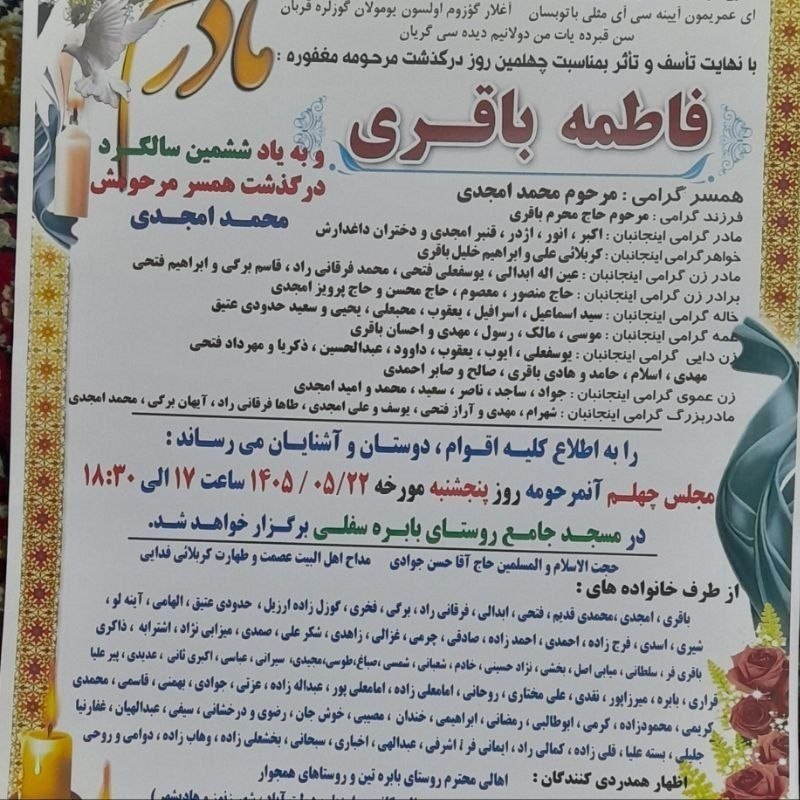 ای عمریمون آیینه سی آی مثلی باتوبسان آغلار گؤزوم اولسون یومولان گوزلره قربان
سن قبرده یات من دولانیم دیده سی گریان
مادر
با نهایت تأسف و تأثر بمناسبت چهلمین روز درگذشت مرحومه مغفوره :
فاطمه باقری
و به یاد ششمین سالگرد
درگذشت همسر مرحومش
محمد امجدی
همسر گرامی : مرحوم محمد امجدی
فرزند گرامی : مرحوم حاج محرم باقری
مادر گرامی اینجانبان : اکبر ، انور ، اژدر ، قنبر امجدی و دختران داغدارش
خواهرگرامی اینجانبان : کربلائی علی و ابراهیم خلیل باقری
مادر زن گرامی اینجانبان : عین اله ابدالی ، یوسفعلی فتحی ، محمد فرقانی راد ، قاسم برگی و ابراهیم فتحی
برادر زن گرامی اینجانبان : حاج منصور ، معصوم ، حاج محسن و حاج پرویز امجدی
خاله گرامی اینجانبان : سید اسماعیل ، اسرافیل ، یعقوب ، محبعلی ، یحیی و سعید حدودی عتیق
عمه گرامی اینجانبان : موسی ، مالک ، رسول ، مهدی و احسان باقری
زن دایی گرامی اینجانبان : یوسفعلی ، ایوب ، یعقوب ، داوود ، عبدالحسین ، ذکریا و مهرداد فتحی
مهدی ، اسلام ، حامد و هادی باقری ، صالح و صابر احمدی
زن عموی گرامی اینجانبان : جواد ، ساجد ، ناصر ، سعید ، محمد و امید امجدی
مادربزرگ گرامی اینجانبان : شهرام ، مهدی و آراز فتحی ، یوسف و علی امجدی ، طاها فرقانی راد ، آیهان برگی ، محمد امجدی
را به اطلاع کلیه اقوام ، دوستان و آشنایان می رساند :
مجلس چهلم آنمرحومه روز پنجشنبه مورخه ۱۴۰۵ / ۰۵/۲۲ ساعت ۱۷ الی ۱۸:۳۰
در مسجد جامع روستای بابره سفلی برگزار خواهد شد.
حجت الاسلام و المسلمین حاج آقا حسن جوادی مداح اهل البیت عصمت و طهارت کربلائی فدایی
از طرف خانواده های :
باقری ، امجدی ،محمدی قدیم ، فتحی ، ابدالی ، فرقانی راد ، برگی ، فخری ، گوزل زاده ارزیل ، حدودی عتیق ، الهامی ، آینه لو ،
شیری ، اسدی ، فرج زاده ، احمدی ، احمد زاده ، صادقی ، چرمی ، غزالی ، زاهدی ، شکر علی ، صمدی ، میزابی نژاد ، اشترابه ، ذاکری
باقری فر ، سلطانی ، میابی اصل ، بخشی ، نژاد حسینی ، خادم ، شعبانی ، شمسی ،صباغ،طوسی،مجیدی، سیرانی ، عباسی ، اکبری ثانی ، عدیدی ، پیر علیا
فراری ، بابره ، میرزاپور ، نقدی ، علی مختاری ، روحانی ، امامعلی زاده ، امامعلی پور ، عبداله زاده ، عزتی ، جوادی ، بهمنی ، قاسمی ، محمدی
کریمی ، محمودزاده ، کرمی ، ابوطالبی ، رمضانی ، ابراهیمی ، خندان ، مصیبی ، خوش جان ، رضوی و درخشانی ، سیفی ، عبدالهیان ، غفارنیا
جلیلی ، بسته علیا ، قلی زاده ، کمالی راد ، ایمانی فر ، اشرفی ، عبدالهی ، اخباری ، سبحانی ، بخشعلی زاده ، وهاب زاده ، دوامی و روحی
اظهار همدردی کنندگان : اهالی محترم روستای بابره تین و روستاهای همجوار